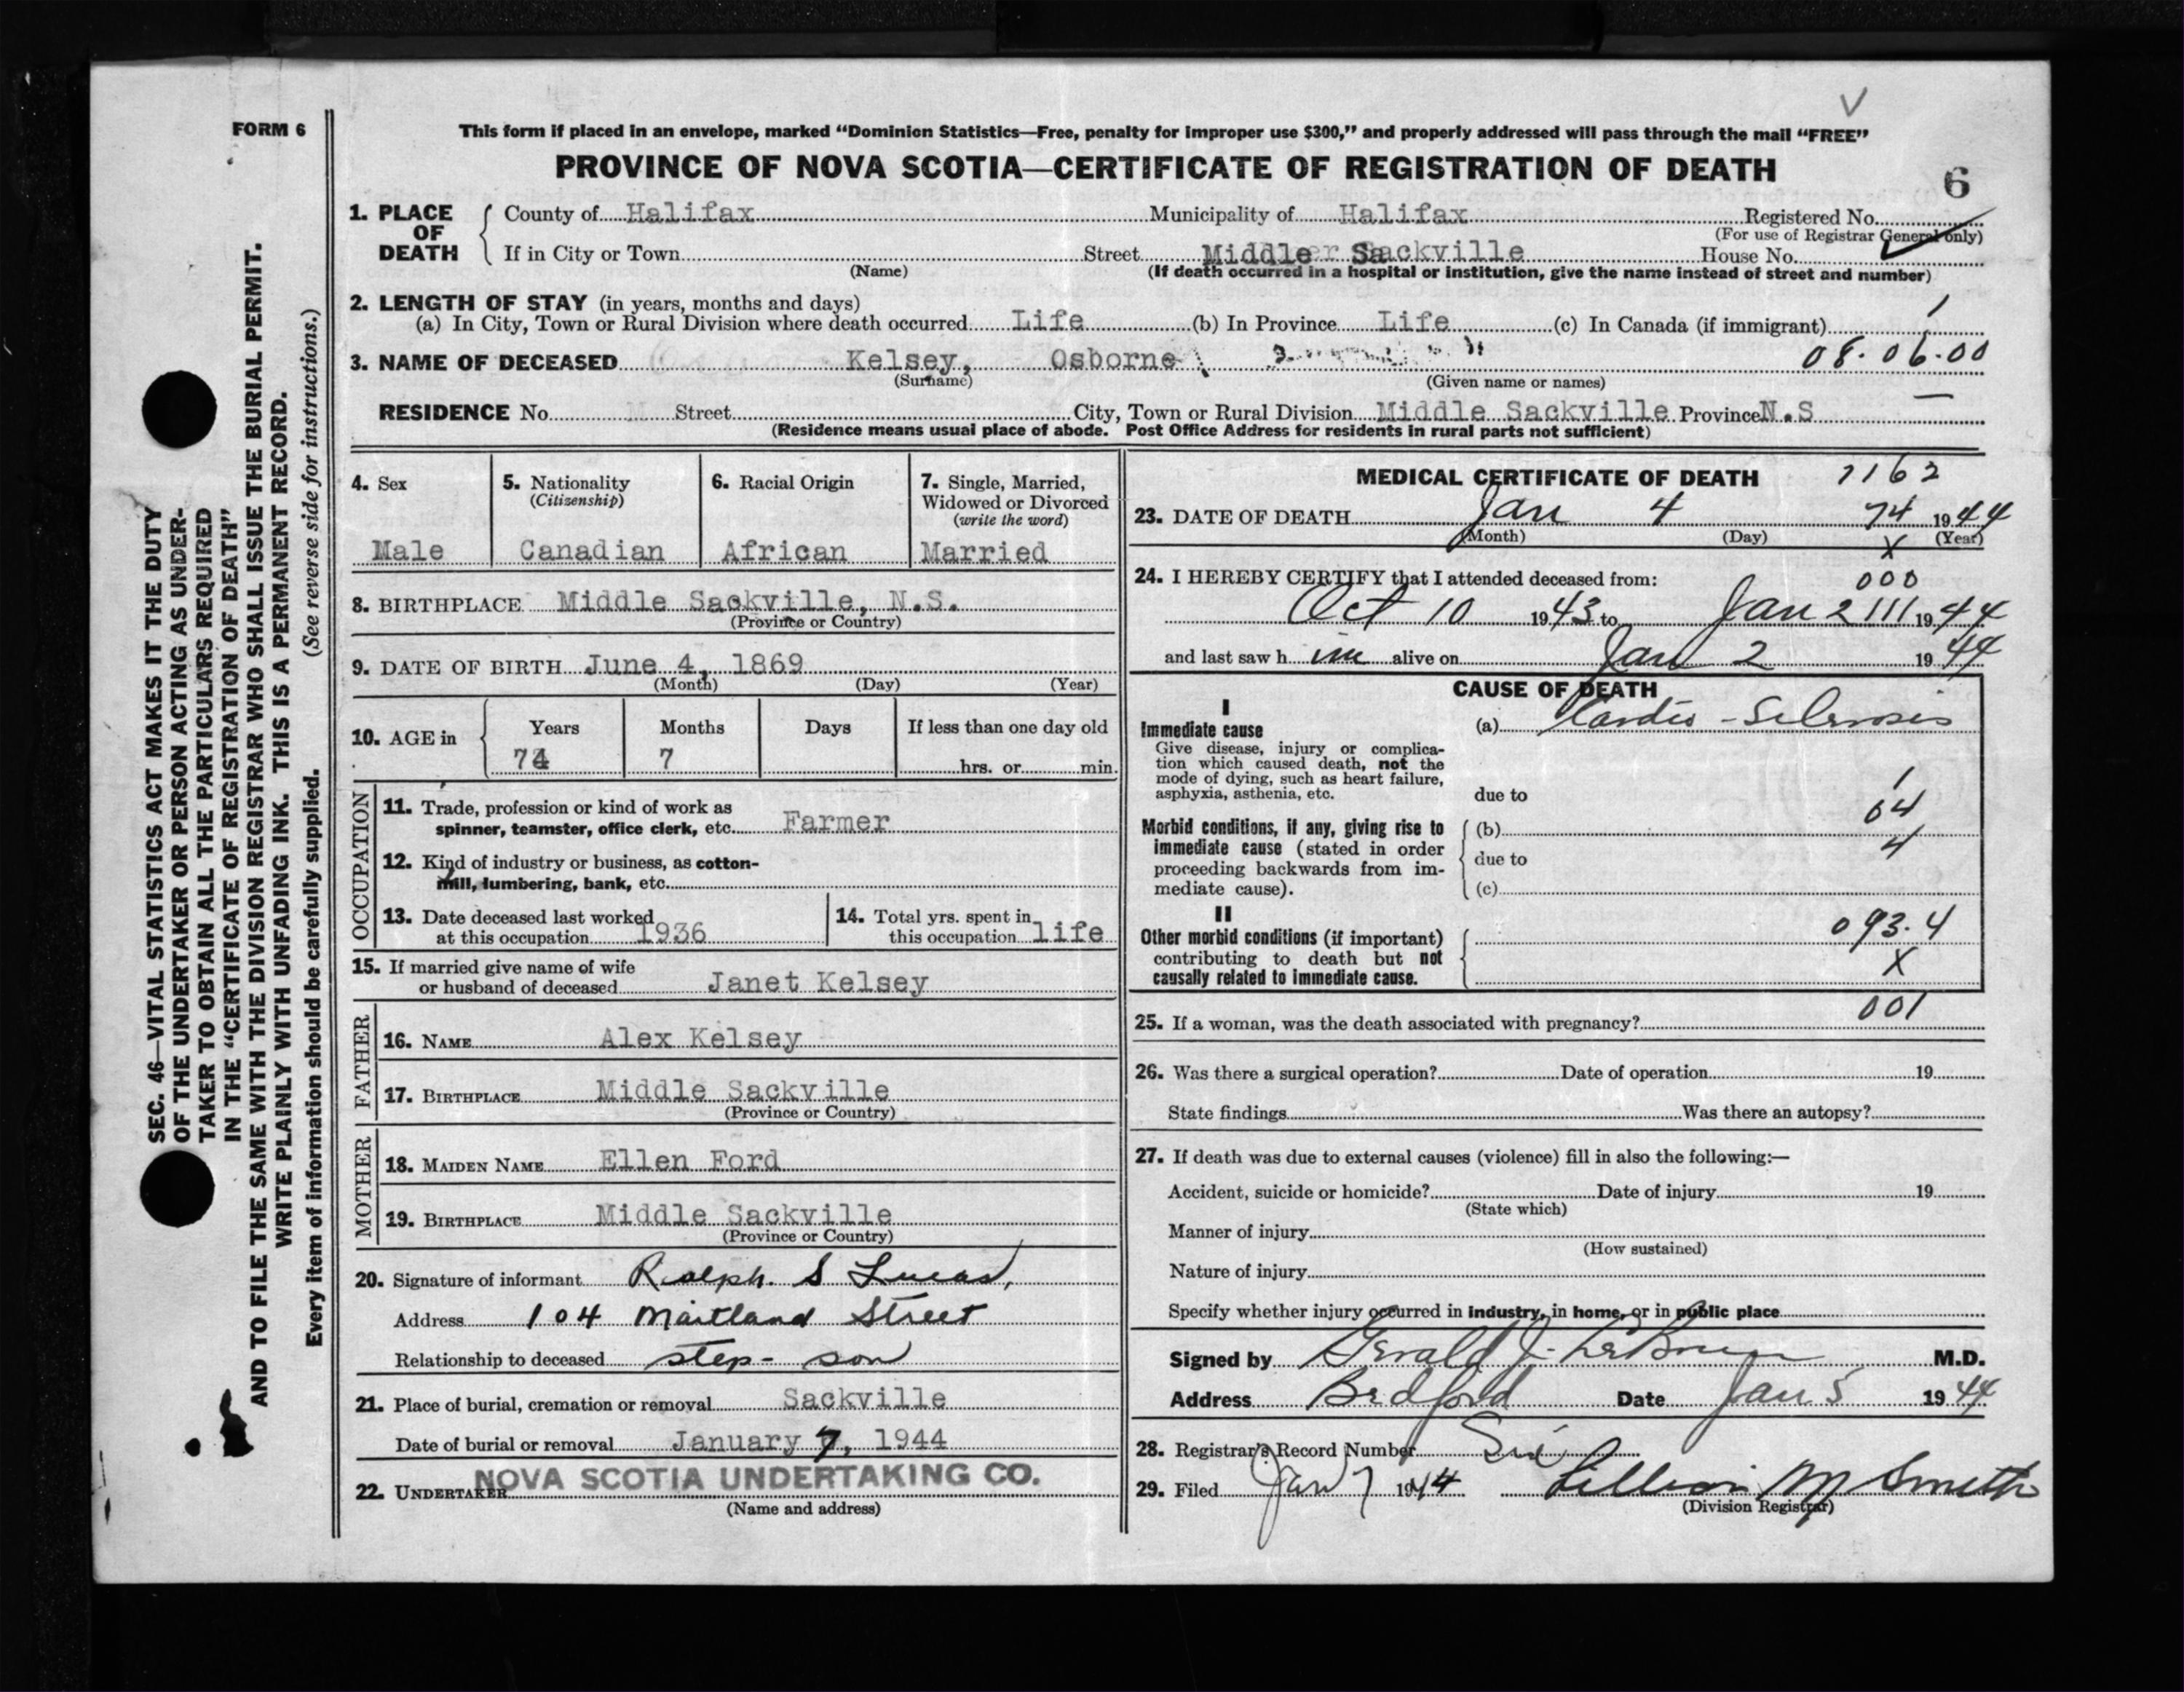 FORM 6
This form if placed in an envelope, marked "Dominion Statistics—Free, penalty for improper use $300," and properly addressed will pass through the mail "FREE"
PROVINCE OF NOVA SCOTIA—CERTIFICATE OF REGISTRATION OF DEATH
6
1. PLACE OF DEATH
County of Halifax Municipality of Halifax Registered No.
(For use of Registrar General only)
If in City or Town Street Middle Sackville House No.
(Name) (If death occurred in a hospital or institution, give the name instead of street and number)
2. LENGTH OF STAY (in years, months and days)
(a) In City, Town or Rural Division where death occurred Life (b) In Province Life (c) In Canada (if immigrant)
3. NAME OF DECEASED Kelsey, Osborne 08.06.00
(Surname) (Given name or names)
RESIDENCE No. Street City, Town or Rural Division Middle Sackville Province N.S
(Residence means usual place of abode. Post Office Address for residents in rural parts not sufficient)
4. Sex
Male
5. Nationality
(Citizenship)
Canadian
6. Racial Origin
African
7. Single, Married,
Widowed or Divorced
(write the word)
Married
8. BIRTHPLACE Middle Sackville, N.S.
(Province or Country)
9. DATE OF BIRTH June 4, 1869
(Month) (Day) (Year)
10. AGE in
Years Months Days If less than one day old
74 7 hrs. or min.
OCCUPATION
11. Trade, profession or kind of work as
spinner, teamster, office clerk, etc. Farmer
12. Kind of industry or business, as cotton-
mill, lumbering, bank, etc.
13. Date deceased last worked
at this occupation 1936
14. Total yrs. spent in
this occupation life
15. If married give name of wife
or husband of deceased Janet Kelsey
FATHER
16. NAME Alex Kelsey
17. BIRTHPLACE Middle Sackville
(Province or Country)
MOTHER
18. MAIDEN NAME Ellen Ford
19. BIRTHPLACE Middle Sackville
(Province or Country)
20. Signature of informant Ralph. S Lucas,
Address 104 Maitland Street
Relationship to deceased step-son
21. Place of burial, cremation or removal Sackville
Date of burial or removal January 7, 1944
22. UNDERTAKER NOVA SCOTIA UNDERTAKING CO.
(Name and address)
MEDICAL CERTIFICATE OF DEATH 1162
23. DATE OF DEATH Jan 4 74 1944
(Month) (Day) X (Year)
24. I HEREBY CERTIFY that I attended deceased from: 000
Oct 10 1943 to Jan 2 111 1944
and last saw h im alive on Jan 2 1944
CAUSE OF DEATH
I
Immediate cause
Give disease, injury or complica-
tion which caused death, not the
mode of dying, such as heart failure,
asphyxia, asthenia, etc.
(a) Cardio-Sclerosis
due to
1
Morbid conditions, if any, giving rise to
immediate cause (stated in order
proceeding backwards from im-
mediate cause).
(b) 64
due to 4
(c)
II
Other morbid conditions (if important)
contributing to death but not
causally related to immediate cause.
093.4
X
25. If a woman, was the death associated with pregnancy? 001
26. Was there a surgical operation? Date of operation 19
State findings Was there an autopsy?
27. If death was due to external causes (violence) fill in also the following:—
Accident, suicide or homicide? Date of injury 19
(State which)
Manner of injury
(How sustained)
Nature of injury
Specify whether injury occurred in industry, in home, or in public place
Signed by Gerald J. LeBrun M.D.
Address Bedford Date Jan 5 1944
28. Registrar's Record Number Six
29. Filed Jan 7 1944 Lillian M Smith
(Division Registrar)
SEC. 46—VITAL STATISTICS ACT MAKES IT THE DUTY
OF THE UNDERTAKER OR PERSON ACTING AS UNDER-
TAKER TO OBTAIN ALL THE PARTICULARS REQUIRED
IN THE "CERTIFICATE OF REGISTRATION OF DEATH"
AND TO FILE THE SAME WITH THE DIVISION REGISTRAR WHO SHALL ISSUE THE BURIAL PERMIT.
WRITE PLAINLY WITH UNFADING INK. THIS IS A PERMANENT RECORD.
Every item of information should be carefully supplied. (See reverse side for instructions.)